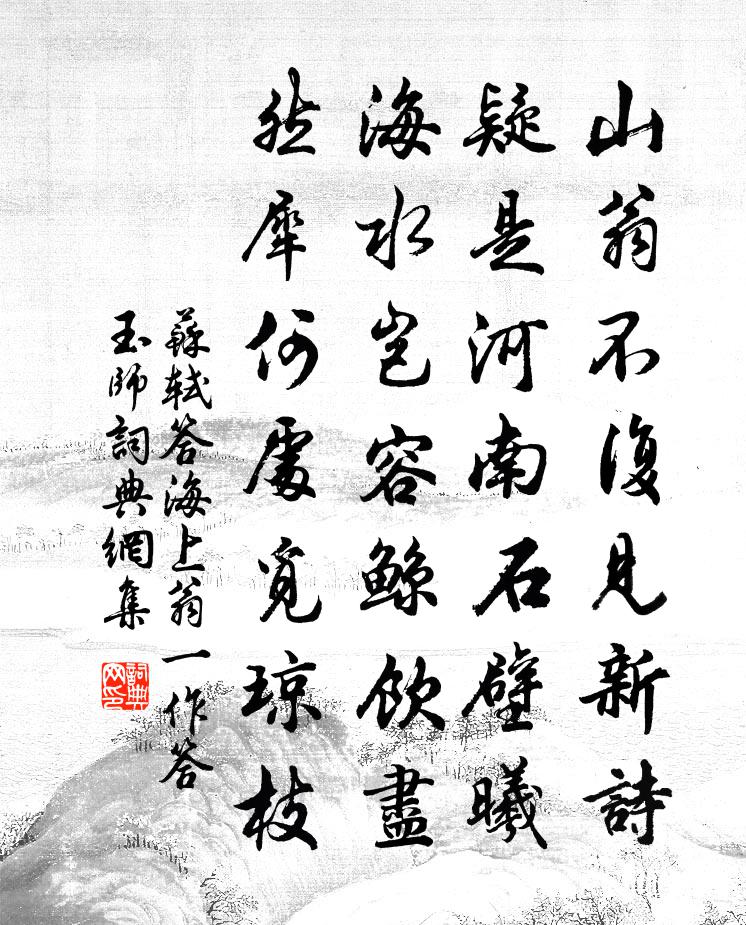 山翁不復見新詩
疑是河南石壁曦
海水豈容鯨飲盡
然犀何處覓瓊枝
蘇軾答海上翁一作答
玉師詞典網集
詞典网印